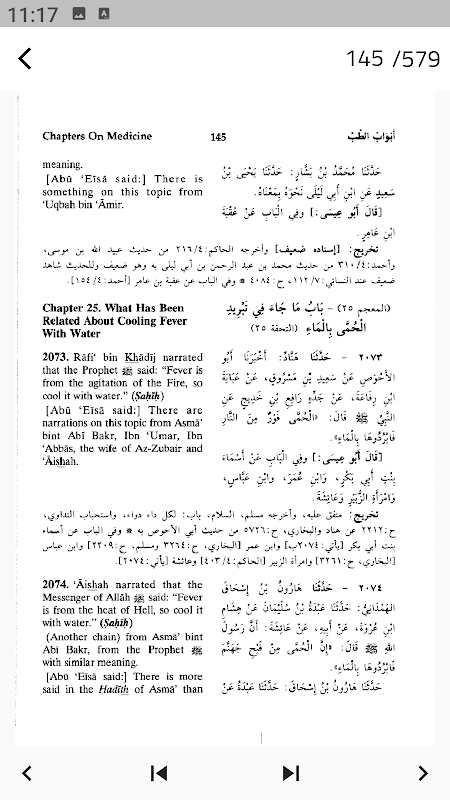 11:17
145 /579
Chapters On Medicine
145
أبْوَابُ الطِّبِّ
meaning.
[Abū ‘Eīsā said:] There is
something on this topic from
‘Uqbah bin ‘Āmir.
حَدَّثَنَا مُحَمَّدُ بْنُ بَشَّارٍ: حَدَّثَنَا يَحْيَى بْنُ
سَعِيدٍ عَنِ ابْنِ أَبِي لَيْلَى نَحْوَهُ بِمَعْنَاهُ.
[قَالَ أَبُو عِيسَى:] وَفِي الْبَابِ عَنْ عُقْبَةَ
ابْنِ عَامِرٍ.
تخريج: [إسناده ضعيف] وأخرجه الحاكم: ٢١٦/٤ من حديث عبيد الله بن موسى،
وأحمد: ٣١٠/٤ من حديث محمد بن عبد الرحمن بن أبي ليلى به وهو ضعيف وللحديث شاهد
ضعيف عند النسائي: ١١٢/٧، ح: ٤٠٨٤ * وفي الباب عن عقبة بن عامر [أحمد: ١٥٤/٤].
Chapter 25. What Has Been
Related About Cooling Fever
With Water
(المعجم ٢٥) - بَابُ مَا جَاءَ فِي تَبْرِيدِ
الْحُمَّى بِالْمَاءِ (التحفة ٢٥)
2073. Rāfi‘ bin Khādīj narrated
that the Prophet ﷺ said: “Fever is
from the agitation of the Fire, so
cool it with water.” (Ṣaḥīḥ)
[Abū ‘Eīsā said:] There are
narrations on this topic from Asmā’
bint Abī Bakr, Ibn ‘Umar, Ibn
‘Abbās, the wife of Az-Zubair and
‘Āishah.
٢٠٧٣ - حَدَّثَنَا هَنَّادٌ: أَخْبَرَنَا أَبُو
الأَحْوَصِ عَنْ سَعِيدِ بْنِ مَسْرُوقٍ، عَنْ عَبَايَةَ
ابْنِ رِفَاعَةَ، عَنْ جَدِّهِ رَافِعِ بْنِ خَدِيجٍ عَنِ
النَّبِيِّ ﷺ قَالَ: «الْحُمَّى فَوْرٌ مِنَ النَّارِ
فَابْرُدُوهَا بِالْمَاءِ».
[قَالَ أَبُو عِيسَى:] وَفِي الْبَابِ عَنْ أَسْمَاءَ
بِنْتِ أَبِي بَكْرٍ، وَابْنِ عُمَرَ، وابْنِ عَبَّاسٍ،
وَامْرَأَةِ الزُّبَيْرِ وَعَائِشَةَ.
تخريج: متفق عليه، وأخرجه مسلم، السلام، باب: لكل داء دواء، واستحباب التداوي،
ح: ٢٢١٢ عن هناد والبخاري، ح: ٥٧٢٦ من حديث أبي الأحوص به * وفي الباب عن أسماء
بنت أبي بكر [يأتي: ٢٠٧٤ب] وابن عمر [البخاري، ح: ٣٢٦٤ ومسلم، ح: ٢٢٠٩] وابن عباس
[البخاري، ح: ٣٢٦١] وامرأة الزبير [الحاكم: ٤٠٣/٤] وعائشة [يأتي: ٢٠٧٤].
2074. ‘Āishah narrated that the
Messenger of Allāh ﷺ said: “Fever
is from the heat of Hell, so cool it
with water.” (Ṣaḥīḥ)
(Another chain) from Asmā’ bint
Abī Bakr, from the Prophet ﷺ
with similar meaning.
[Abū ‘Eīsā said:] There is more
said in the Ḥadīth of Asmā’ than
٢٠٧٤ - حَدَّثَنَا هَارُونُ بْنُ إِسْحَاقَ
الْهَمْدَانِيُّ: حَدَّثَنَا عَبْدَةُ بْنُ سُلَيْمَانَ عَنْ هِشَامِ
ابْنِ عُرْوَةَ، عَنْ أَبِيهِ، عَنْ عَائِشَةَ: أَنَّ رَسُولَ
اللهِ ﷺ قَالَ: «إِنَّ الْحُمَّى مِنْ فَيْحِ جَهَنَّمَ
فَابْرُدُوهَا بِالْمَاءِ».
حَدَّثَنَا هَارُونُ بْنُ إِسْحَاقَ: حَدَّثَنَا عَبْدَةُ عَنْ